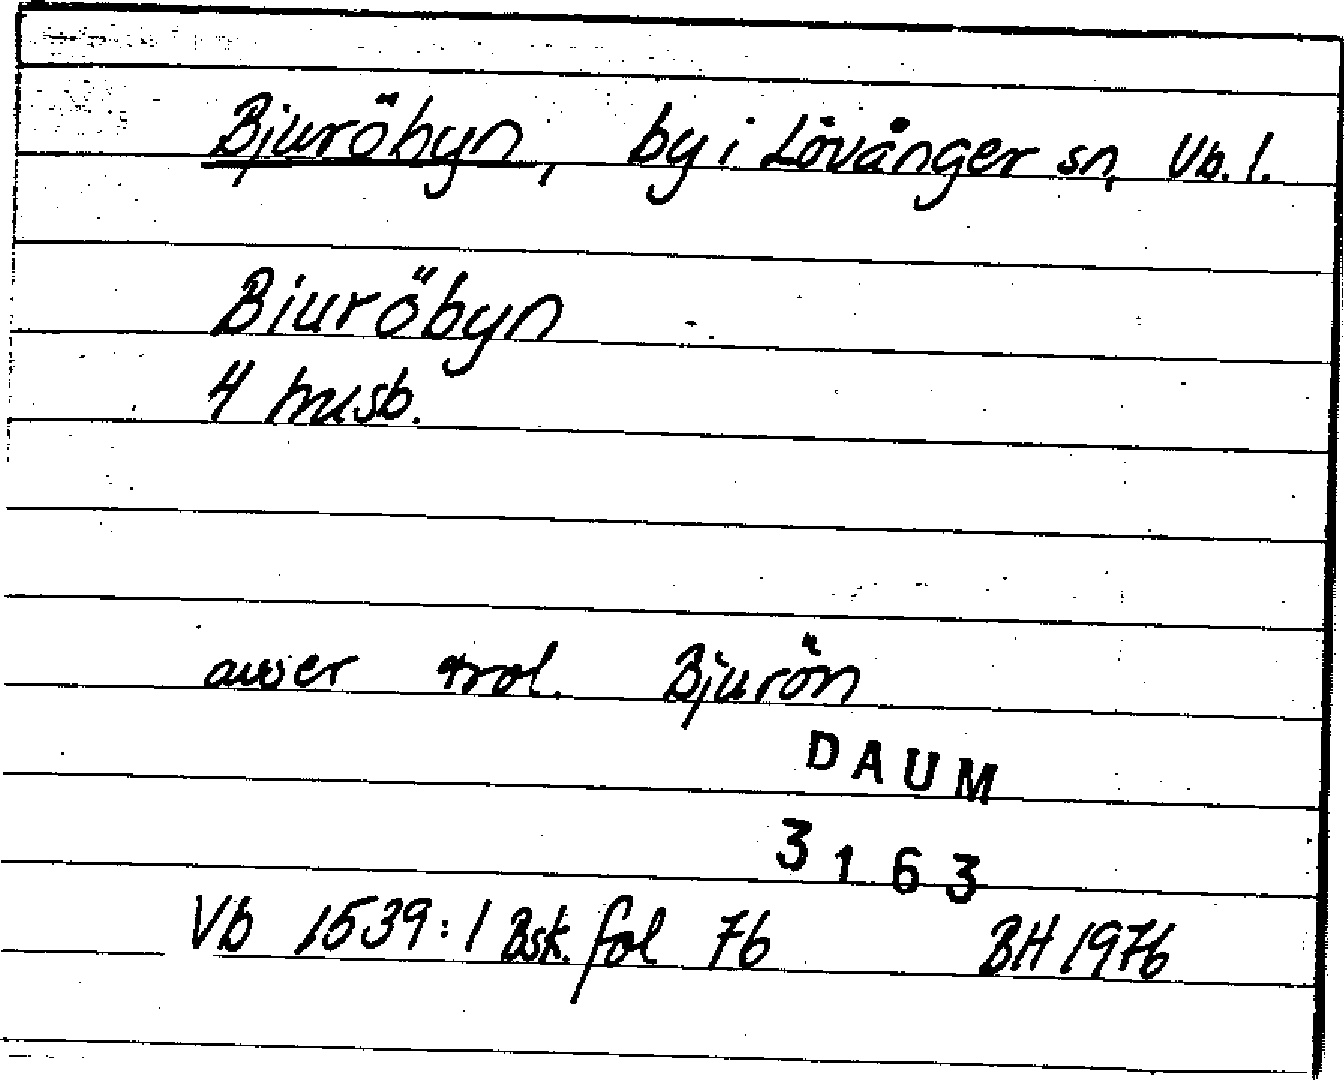 Bjuröbyn, by i Lövånger sn, Vb. l.
Biuröbyn
4 husb.
avser trol. Bjurön
DAUM
3163
Vb 1539:1 Bsk. fol 76 BH 1976